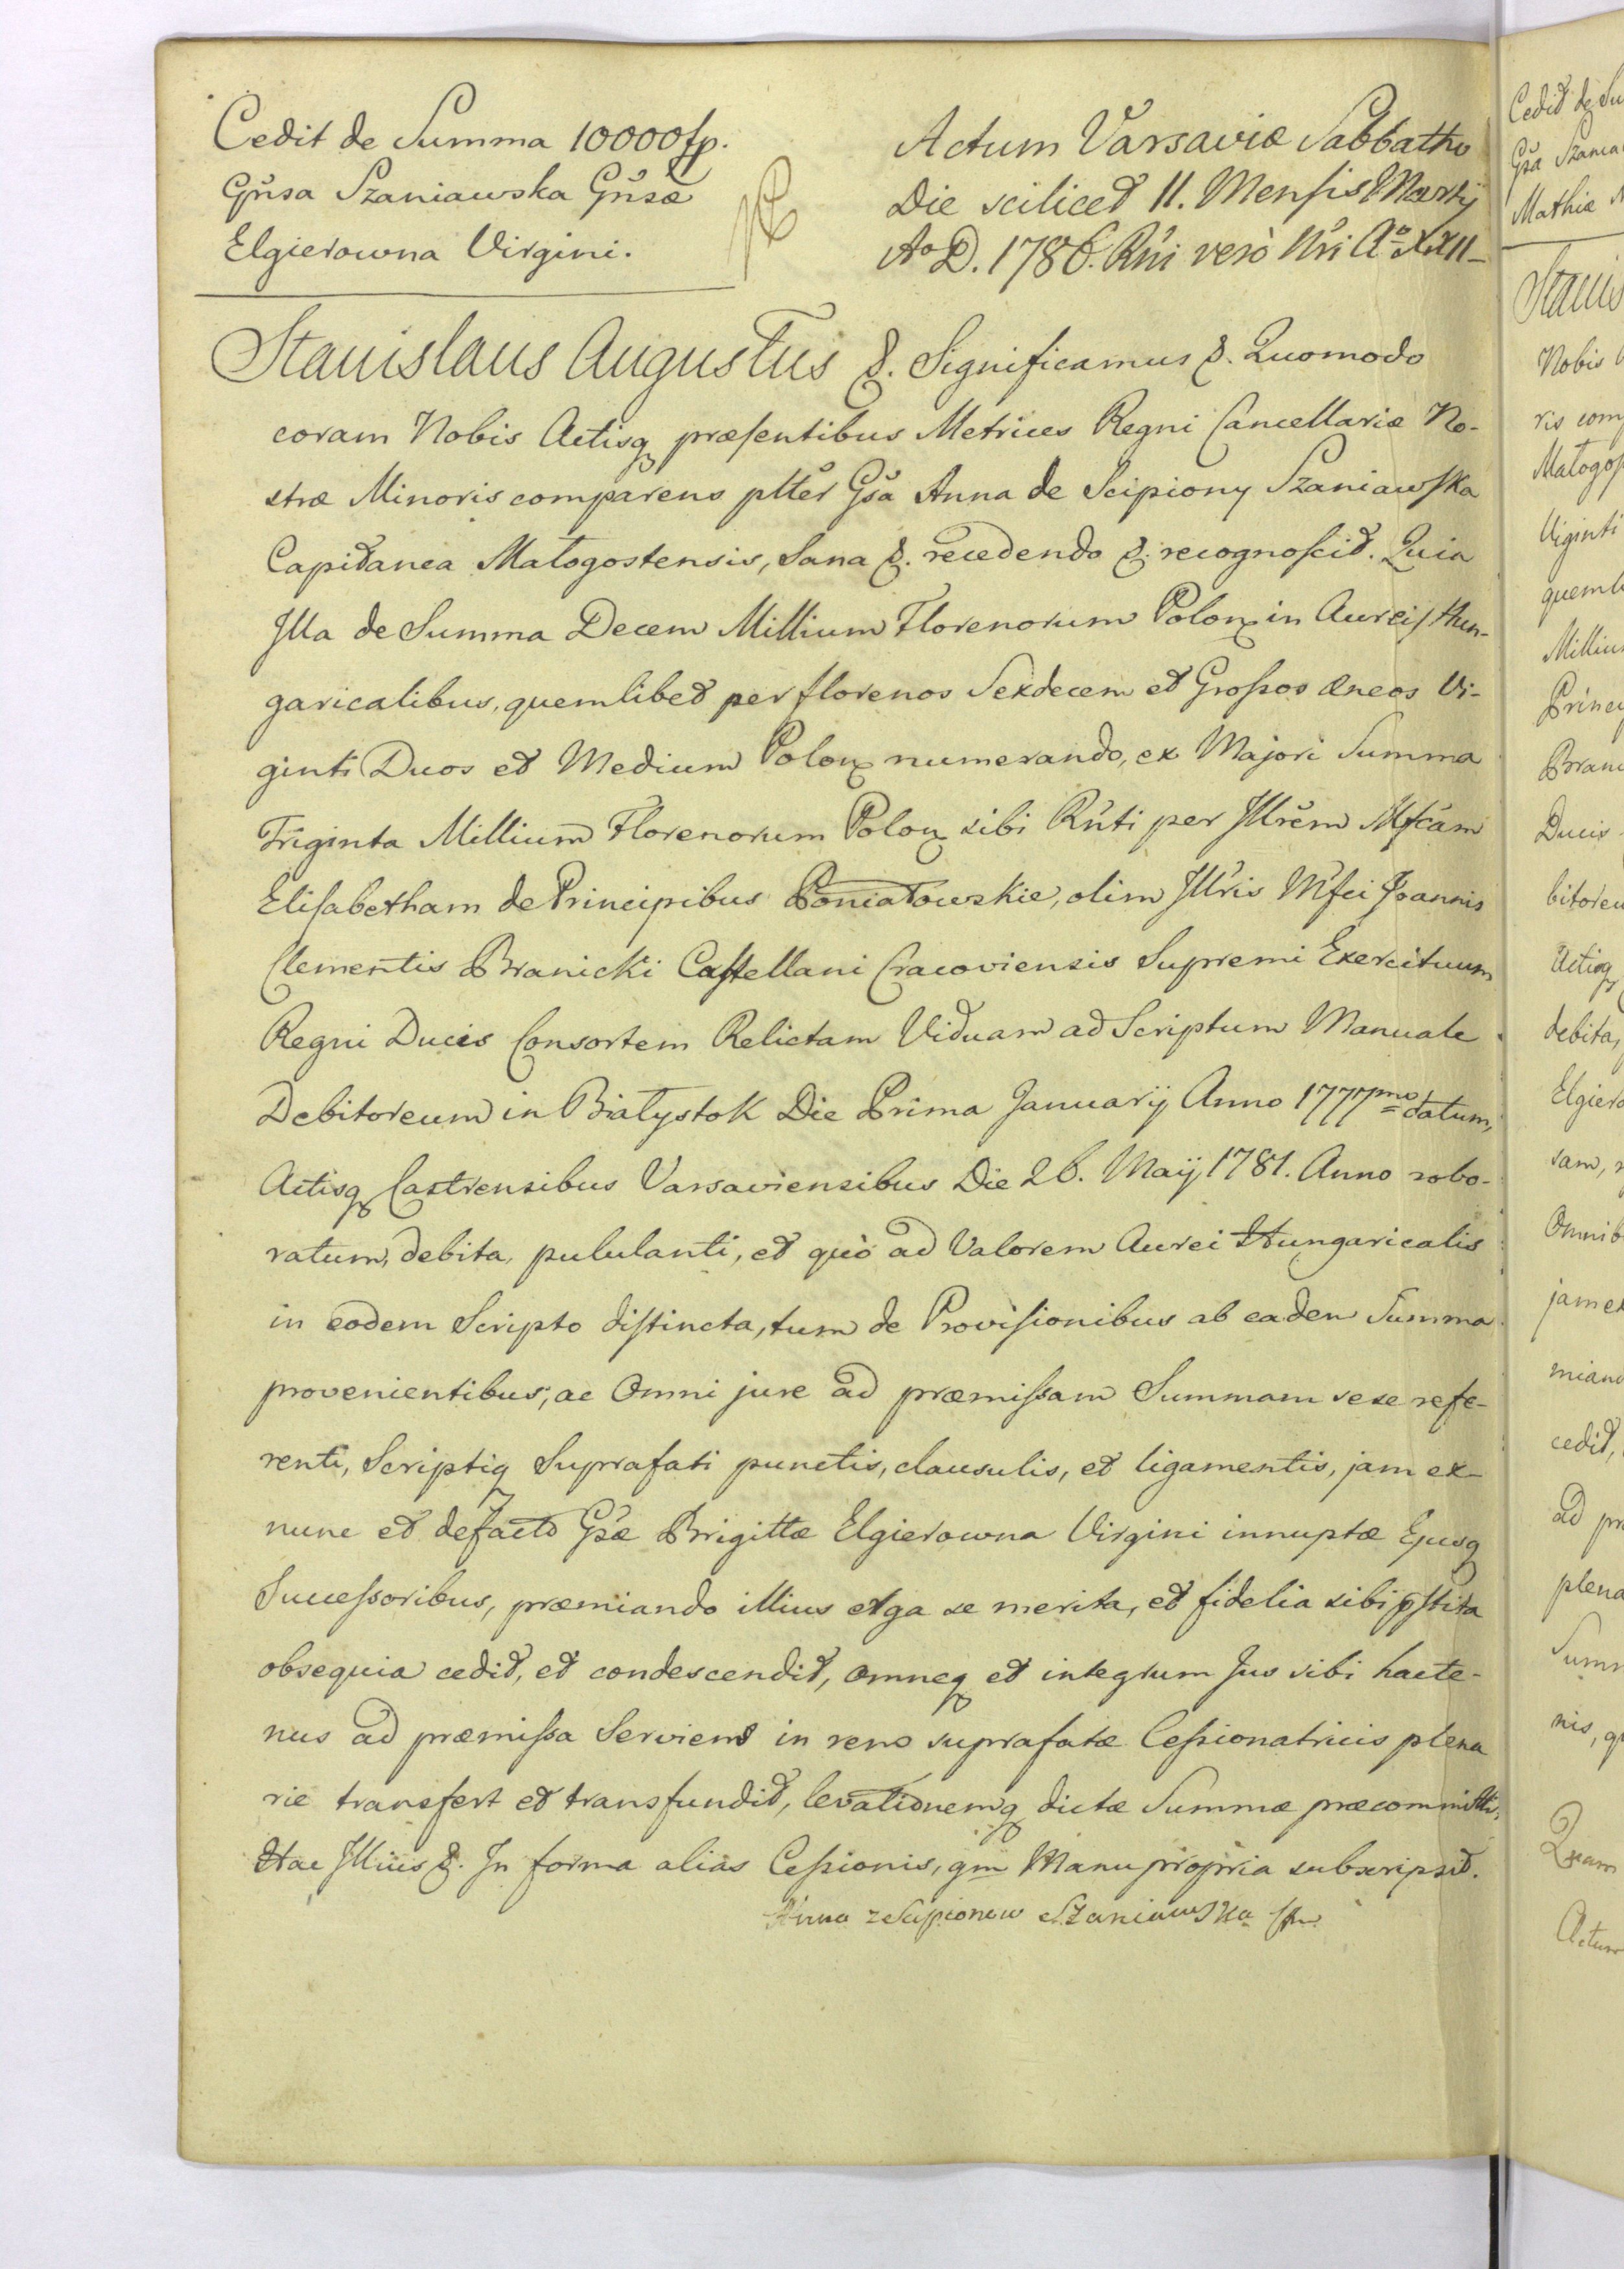 Cedit de Summa 10000 fp.
Gn̄sa Szaniawska Gn̄sæ
Elgierowna Virgini.
Actum Varsaviæ Sabbatho
Die scilicet 11. Mensis Martij
Ao D. 1786. Rn̄i verò Nr̄i Ao XXII
Stanislaus Augustus &. Significamus &. Quomodo
coram Nobis Actisq præsentibus Metrices Regni Cancellariæ No-
stræ Minoris comparens pltēr Gs̄a Anna de Scipiony Szaniawska
Capitanea Małogostensis, Sana &. recedendo &. recognoscit. Quia
Illa de Summa Decem Millium Florenorum Polon in Aureis Hun-
garicalibus, quemlibet per florenos Sexdecem et Grossos Æneos Vi-
ginti Duos et Medium Polon numerando, ex Majori Summa
Triginta Millium Florenorum Polon sibi Rn̄ti per Illrēm Mfcām
Elisabetham de Principibus Poniatowskie, olim Illr̄is Mfci Joannis
Clementis Branicki Castellani Cracoviensis Supremi Exercituum
Regni Ducis Consortem Relictam Viduam ad Scriptum Manuale
Debitoreum in Białystok Die Prima Januarij Anno 1777mo datum,
Actisq Castrensibus Varsaviensibus Die 26. Maij 1781. Anno robo-
ratum, debita, pululanti, et quò ad Valorem Aurei Hungaricalis
in eodem Scripto distincta, tum de Provisionibus ab eadem Summa
provenientibus, ac Omni jure ad præmissam Summam sese refe-
renti, Scriptiq Suprafati punctis, clausulis, et ligamentis, jam ex-
nunc et defacto Gs̄æ Brigittæ Elgierowna Virgini innuptæ Ejusq
Successoribus, præmiando illius erga se merita, et fidelia sibi p̄stita
obsequia cedit, et condescendit, omneq et integrum Jus sibi hacte-
nus ad præmissa Serviens in rem suprafatæ Cessionatricis plena
rie transfert et transfundit, levationemq dictæ Summæ præcommittit,
Hac Illius &. In forma alias Cessionis, qm Manu propria subscripsit.
Anna z Scipionow Szaniawska
Cedit de Su
Gs̄a Szania
Mathiæ
Stanis
Nobis
ris com
Małogos
Viginti
quemli
Milliu
Princi
Brani
Ducis
bitoreu
Actisq
debita,
Elgiero
sam,
Omnib
jam ex
miand
cedit,
ad pr
plena
Summ
nis, q
Quam
Actum